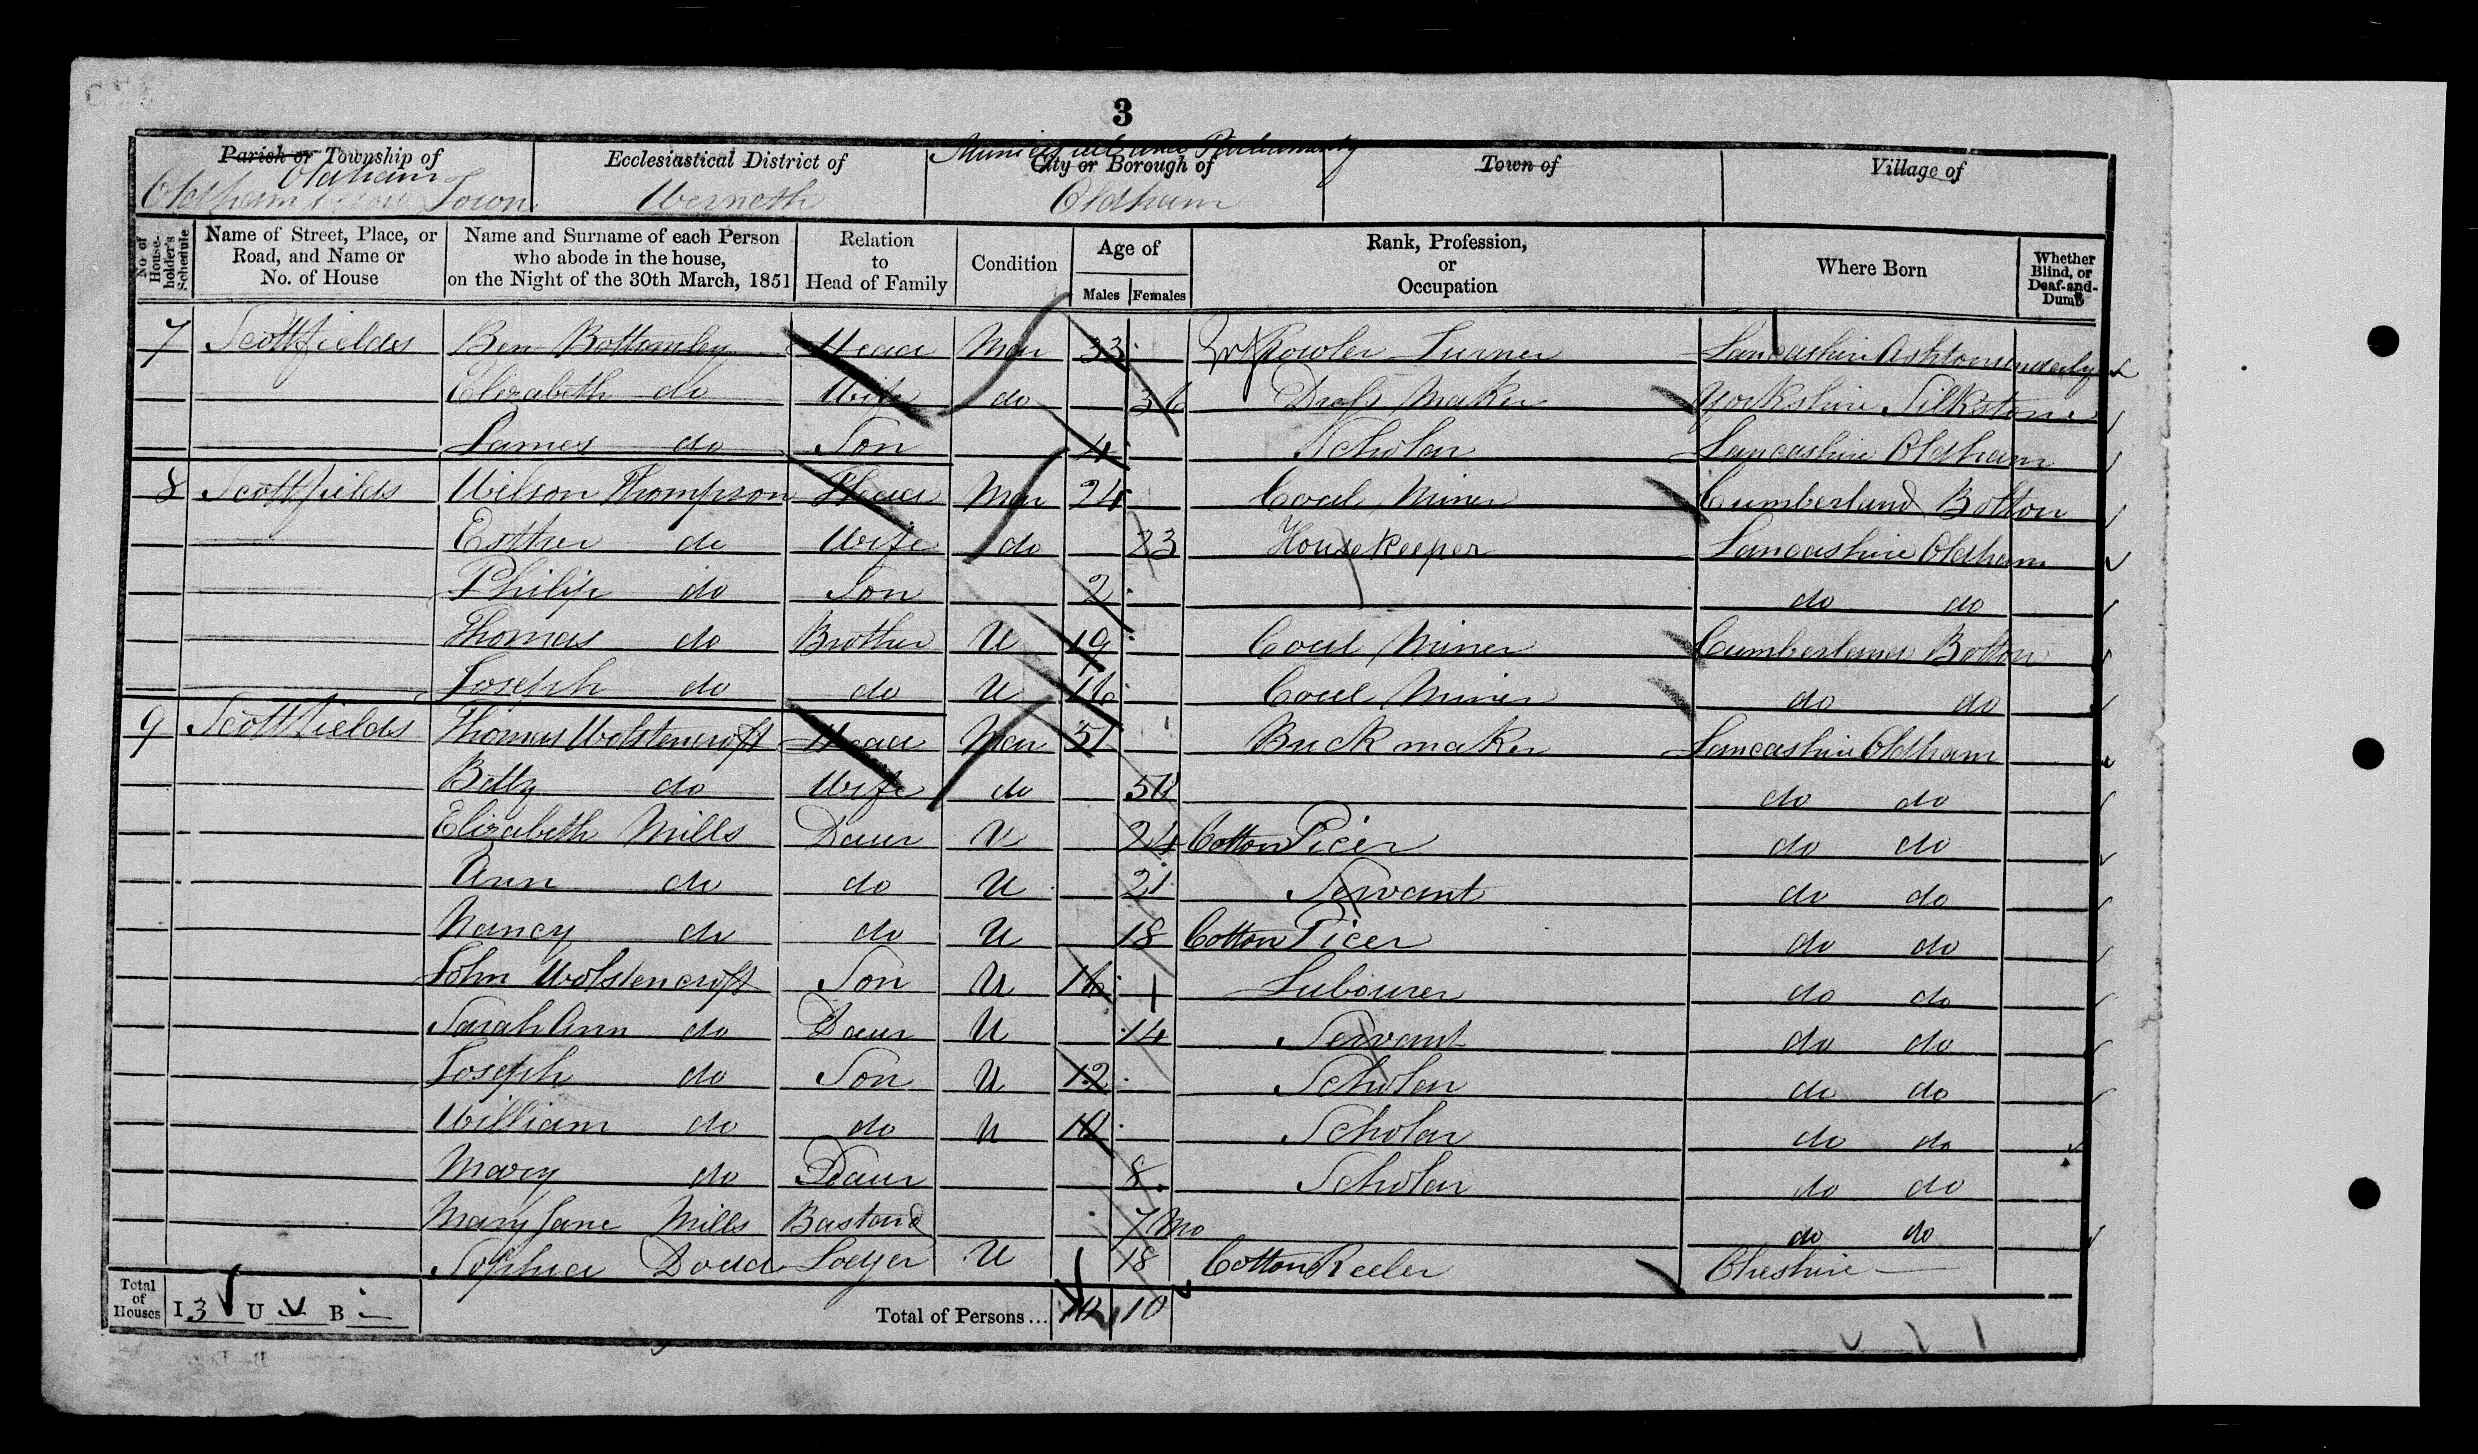 3
Parish or Township of Ecclesiastical District of City or Borough of Town of Village of
Oldham
Oldham Town Werneth Oldham
No. of Householder's Schedule Name of Street, Place, or Road, and Name or No. of House Name and Surname of each Person who abode in the house, on the Night of the 30th March, 1851 Relation to Head of Family Condition Age of Males Females Rank, Profession, or Occupation Where Born Whether Blind, or Deaf-and-Dumb
7 Scottfields Ben Bottomley Head Mar 33 Rowler Turner Lancashire Ashtonunderly
Elizabeth do Wife do 36 Draf Maker Yorkshire Silkstone
James do Son 4 Scholar Lancashire Oldham
8 Scottfields Wilson Thompson Head Mar 24 Coal Miner Cumberland Bolton
Esther do Wife do 23 Housekeeper Lancashire Oldham
Philip do Son 2 do do
Thomas do Brother U 19 Coal Miner Cumberland Bolton
Joseph do do U 16 Coal Miner do do
9 Scottfields Thomas Wolstencroft Head Mar 51 Brick maker Lancashire Oldham
Betty do Wife do 50 do do
Elizabeth Mills Daur U 24 Cotton Picer do do
Ann do do U 21 Servant do do
Nancy do do U 18 Cotton Picer do do
John Wolstencroft Son U 16 Labourer do do
Sarah Ann do Daur U 14 Servant do do
Joseph do Son U 12 Scholar do do
William do do U 10 Scholar do do
Mary do Daur 8 Scholar do do
Mary Jane Mills Bastard 7 Mo do do
Sophia Dodd Lodger U 18 Cotton Reeler Cheshire
Total of Houses I 3 U B Total of Persons... 10 10